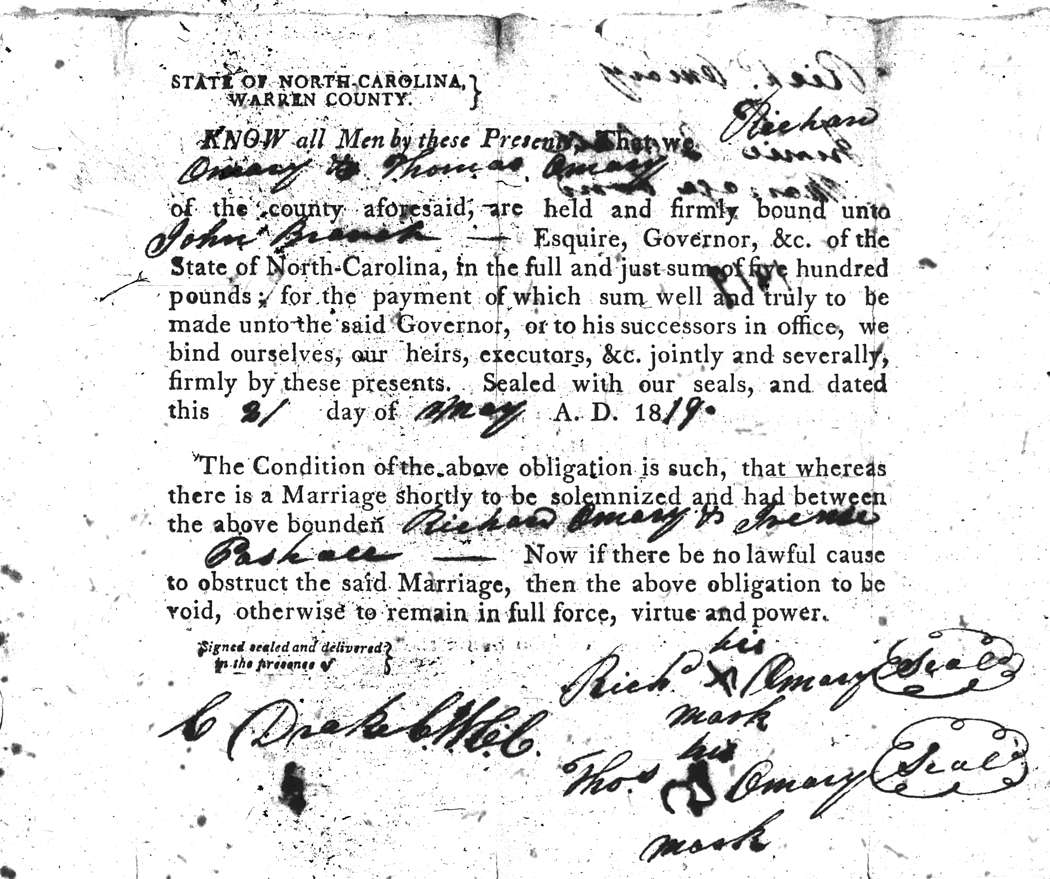 STATE OF NORTH-CAROLINA, }
WARREN COUNTY.
KNOW all Men by these Presents, That we Richard
Omary & Thomas Omary
of the county aforesaid, are held and firmly bound unto
John Branch — Esquire, Governor, &c. of the
State of North-Carolina, in the full and just sum of five hundred
pounds; for the payment of which sum well and truly to be
made unto the said Governor, or to his successors in office, we
bind ourselves, our heirs, executors, &c. jointly and severally,
firmly by these presents. Sealed with our seals, and dated
this 21 day of May A. D. 1819.
The Condition of the above obligation is such, that whereas
there is a Marriage shortly to be solemnized and had between
the above bounden Richard Omary & Irenie
Paskall — Now if there be no lawful cause
to obstruct the said Marriage, then the above obligation to be
void, otherwise to remain in full force, virtue and power.
Signed sealed and delivered }
in the presence of
his
Richd. X Omary Seal
mark
C Drake C.W.C.C.
his
Thos. Omary Seal
mark